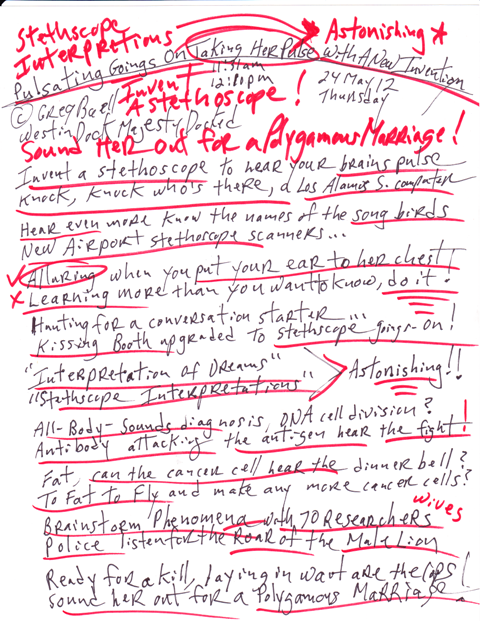 Stethscope
Interpretions
Astonishing *
Pulsating Goings On Taking Her Pulse With A New Invention
11:51am
12:00pm
24 May 12
Thursday
Invent
A stethoscope!
© Greg Buell
Westin Dock Majesty Docked
Sound Her Out for a Polygamous Marriage!
Invent a stethoscope to hear your brains pulse
Knock, knock who's there, a Los Alamos S. computer
Hear even more know the names of the song birds
New Airport stethoscope scanners...
Alluring when you put your ear to her chest!
Learning more than you want to know, do it!
Hunting for a conversation starter...
Kissing Booth upgraded to stethscope goings-on!
"Interpretation of Dreams"
"Stethscope Interpretations"
Astonishing!!
All-Body-Sounds diagnosis, DNA cell division?
Antibody attacking the antigen hear the fight!
Fat, can the cancer cell hear the dinner bell?
To Fat to Fly and make any more cancer cells?
wives
Brainstorm Phenomena with 70 Researchers
Police listen for the Roar of the Male Lion
Ready for a kill, laying in wait are the cops!
sound her out for a Polygamous Marriage.